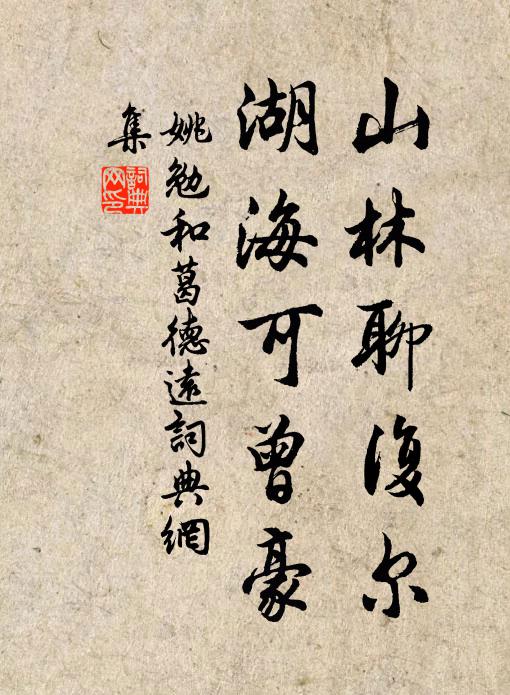 山林聊復尔
湖海可曾豪
姚勉和葛德遠詞典網
集
詞典
网印